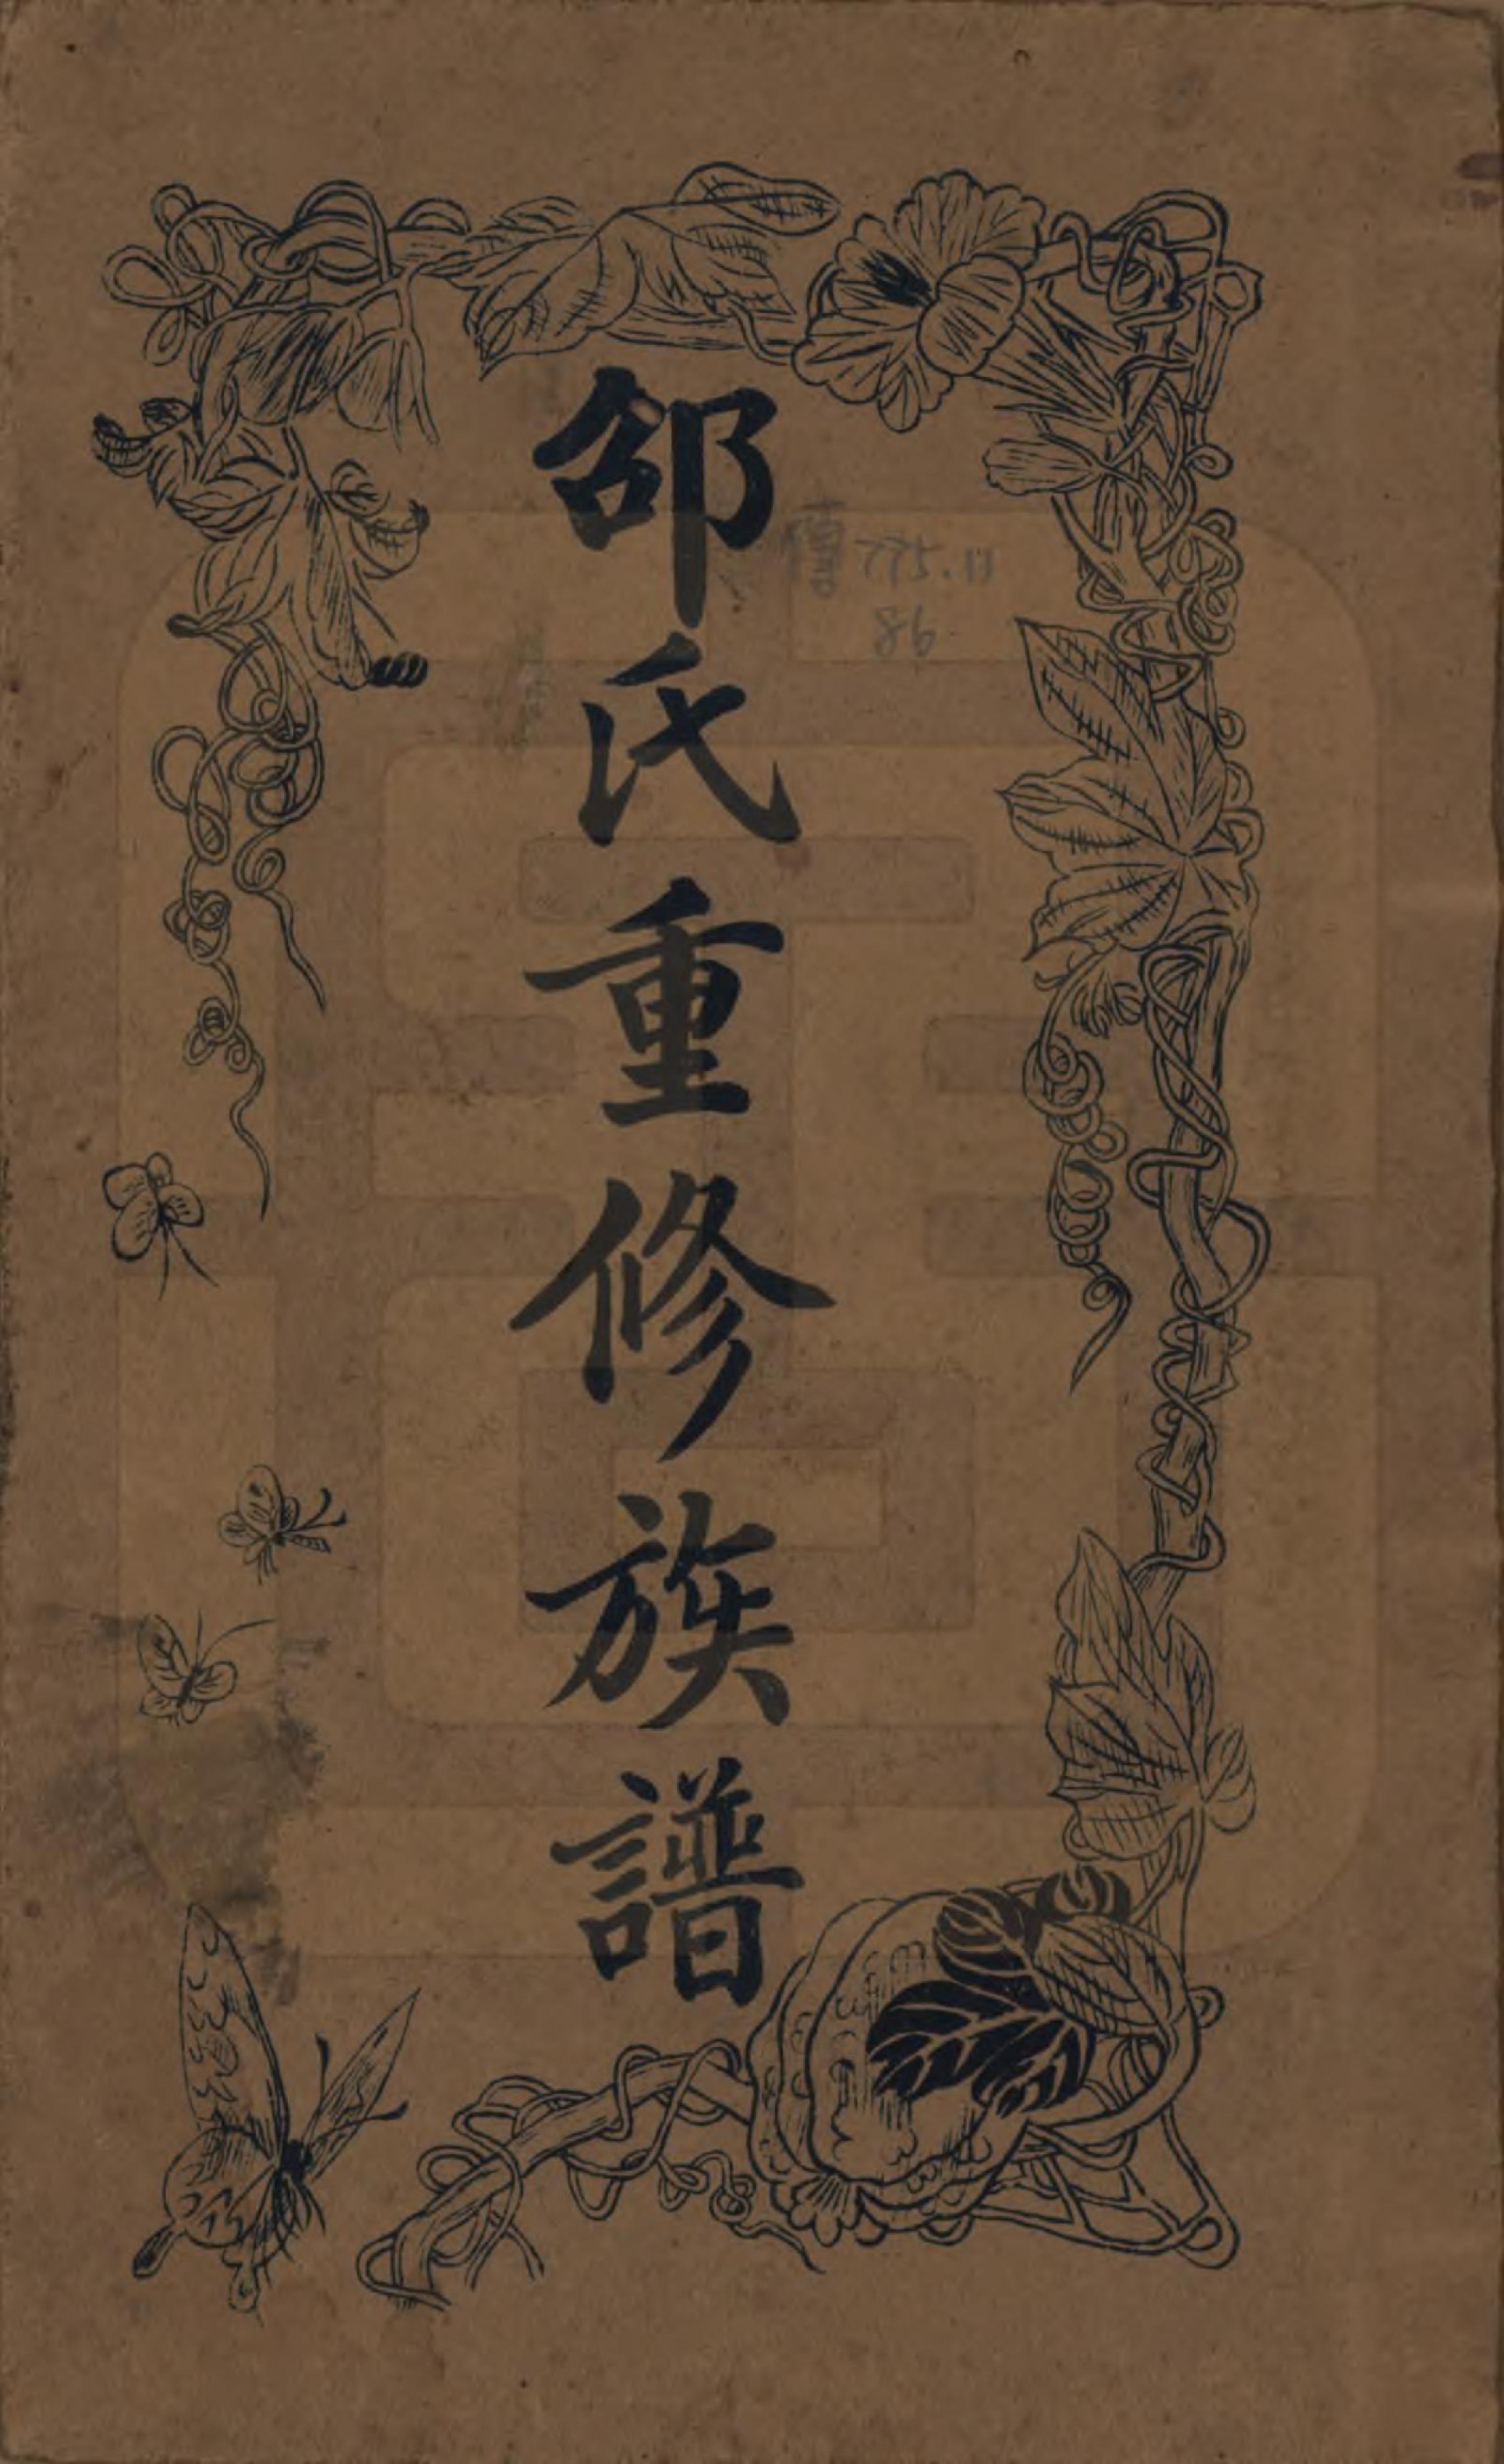 邵氏重修族譜
傳775.11
86